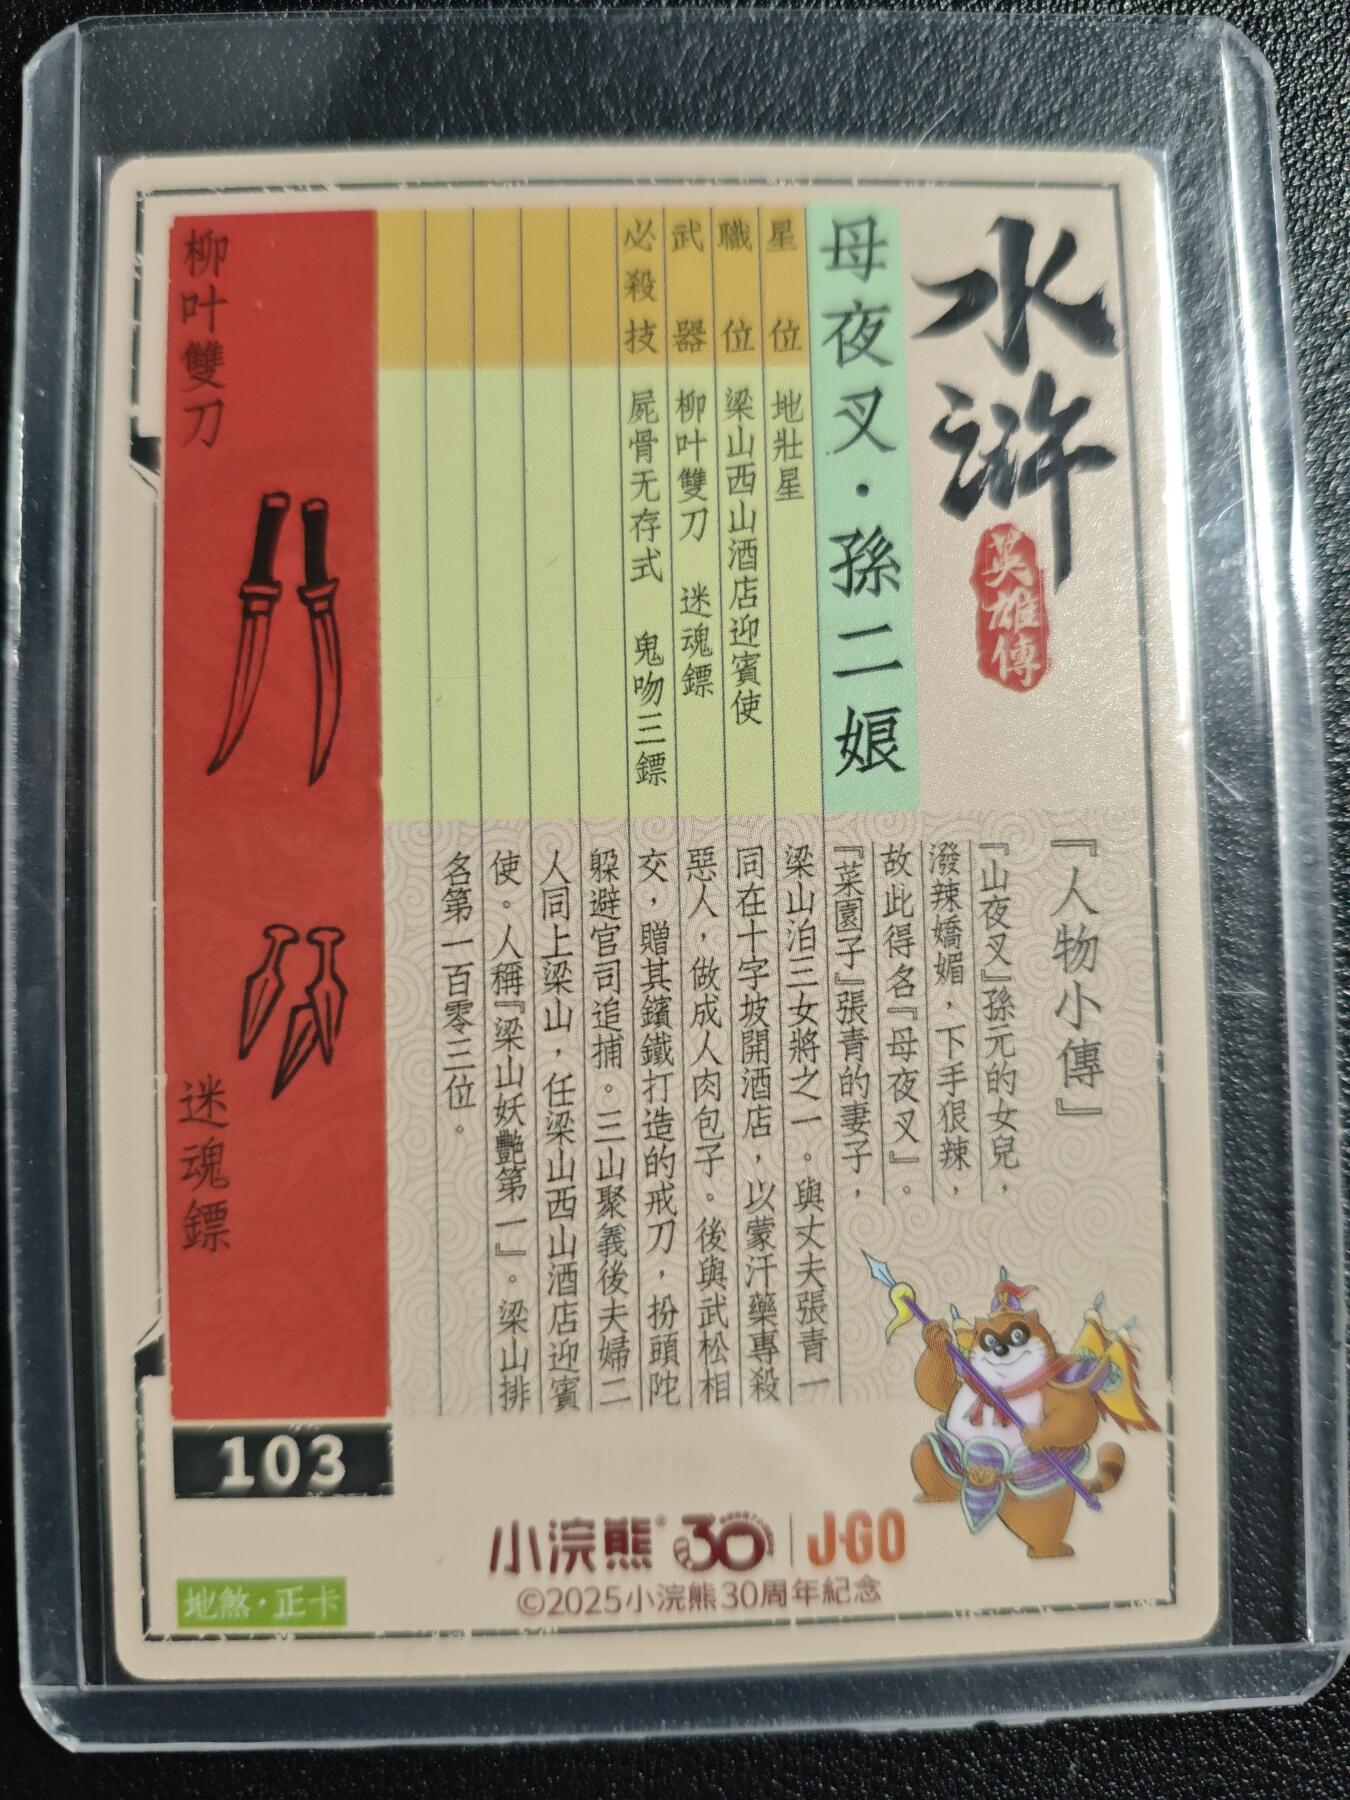 水滸
英雄傳
母夜叉·孫二娘
星位 地壯星
職位 梁山西山酒店迎賓使
武器 柳叶雙刀 迷魂鏢
必殺技 屍骨无存式 鬼吻三鏢
『人物小傳』
『山夜叉』孫元的女兒，
潑辣嬌媚，下手狠辣，
故此得名『母夜叉』。
『菜園子』張青的妻子，
梁山泊三女將之一。與丈夫張青一
同在十字坡開酒店，以蒙汗藥專殺
惡人，做成人肉包子。後與武松相
交，贈其鑌鐵打造的戒刀，扮頭陀
躲避官司追捕。三山聚義後夫婦二
人同上梁山，任梁山西山酒店迎賓
使。人稱『梁山妖艷第一』。梁山排
名第一百零三位。
柳叶雙刀
迷魂鏢
103
地煞·正卡
小浣熊® 30 | J·GO
©2025小浣熊30周年紀念